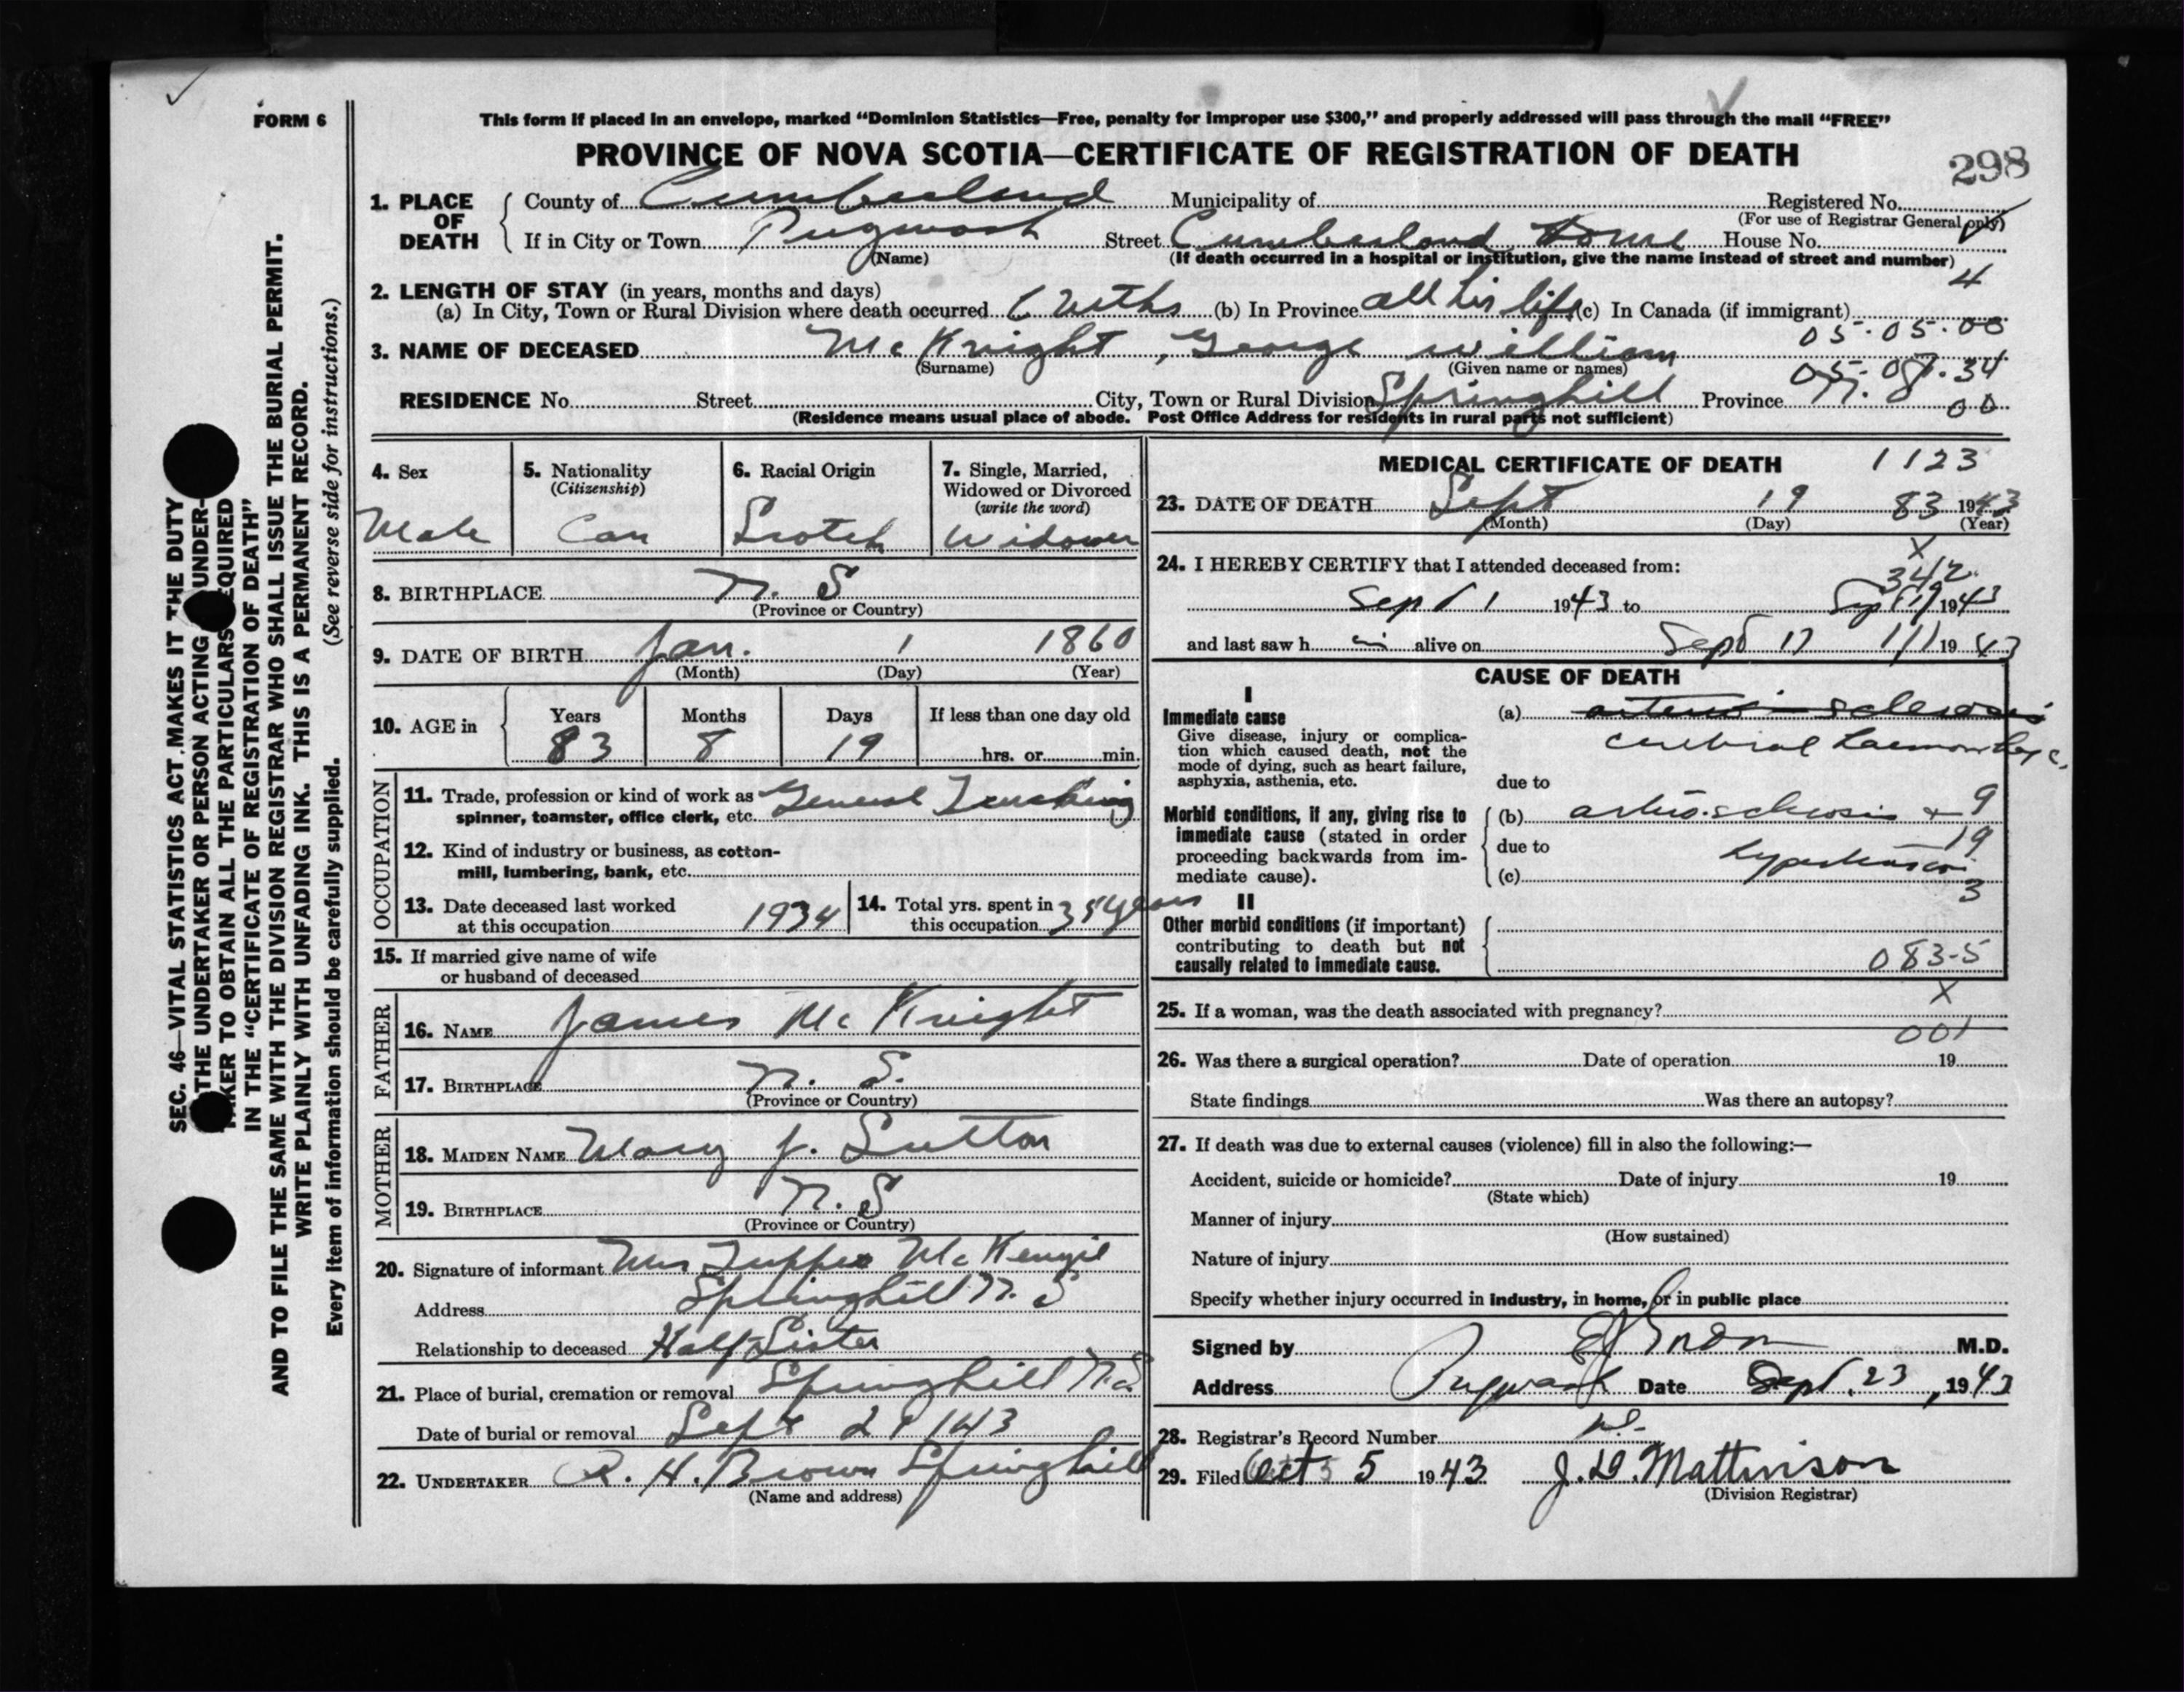 FORM 6
This form if placed in an envelope, marked “Dominion Statistics—Free, penalty for improper use $300,” and properly addressed will pass through the mail “FREE”
PROVINCE OF NOVA SCOTIA—CERTIFICATE OF REGISTRATION OF DEATH
298
1. PLACE OF DEATH
County of Cumberland Municipality of Registered No.
(For use of Registrar General only)
If in City or Town Pugwash Street Cumberland Home House No.
(Name) (If death occurred in a hospital or institution, give the name instead of street and number)
4
2. LENGTH OF STAY (in years, months and days)
(a) In City, Town or Rural Division where death occurred (b) In Province all his life (c) In Canada (if immigrant)
05-05-00
3. NAME OF DECEASED McKnight, George William
(Surname) (Given name or names)
RESIDENCE No. Street City, Town or Rural Division Springhill Province N. S.
00
(Residence means usual place of abode. Post Office Address for residents in rural parts not sufficient)
4. Sex
Male
5. Nationality
(Citizenship)
Can
6. Racial Origin
Scotch
7. Single, Married,
Widowed or Divorced
(write the word)
Widower
8. BIRTHPLACE N. S
(Province or Country)
9. DATE OF BIRTH Jan. 1 1860
(Month) (Day) (Year)
10. AGE in
Years Months Days If less than one day old
83 8 19 hrs. or min.
OCCUPATION
11. Trade, profession or kind of work as General Trucking
spinner, teamster, office clerk, etc.
12. Kind of industry or business, as cotton-
mill, lumbering, bank, etc.
13. Date deceased last worked
at this occupation 1934
14. Total yrs. spent in
this occupation 35 years
15. If married give name of wife
or husband of deceased
FATHER
16. NAME James McKnight
17. BIRTHPLACE N. S.
(Province or Country)
MOTHER
18. MAIDEN NAME Mary J. Sutton
19. BIRTHPLACE N. S
(Province or Country)
20. Signature of informant Mrs Tupper McKenzie
Address Springhill N. S
Relationship to deceased Half Sister
21. Place of burial, cremation or removal Springhill N.S
Date of burial or removal Sept
22. UNDERTAKER R. H. Brown Springhill
(Name and address)
MEDICAL CERTIFICATE OF DEATH 1123
23. DATE OF DEATH Sept 19 83 1943
(Month) (Day) (Year)
X
24. I HEREBY CERTIFY that I attended deceased from:
342
Sept 1 1943 to Sept 19 1943
and last saw h im alive on Sept 17 19 43
CAUSE OF DEATH
I
Immediate cause
Give disease, injury or complica-
tion which caused death, not the
mode of dying, such as heart failure,
asphyxia, asthenia, etc.
(a) arterio-sclerosis
cerebral haemorrhage
due to
Morbid conditions, if any, giving rise to
immediate cause (stated in order
proceeding backwards from im-
mediate cause).
(b) arterio-sclerosis + 9
due to 19
hypertension
(c) 3
II
Other morbid conditions (if important)
contributing to death but not
causally related to immediate cause.
083-5
X
25. If a woman, was the death associated with pregnancy?
001
26. Was there a surgical operation? Date of operation 19
State findings Was there an autopsy?
27. If death was due to external causes (violence) fill in also the following:—
Accident, suicide or homicide? Date of injury 19
(State which)
Manner of injury
(How sustained)
Nature of injury
Specify whether injury occurred in industry, in home, or in public place
Signed by M.D.
Address Pugwash Date Sept. 23, 1943
28. Registrar's Record Number
29. Filed Oct 5 1943 J. D. Mattinson
(Division Registrar)
SEC. 46—VITAL STATISTICS ACT MAKES IT THE DUTY
THE UNDERTAKER OR PERSON ACTING UNDER-
TAKER TO OBTAIN ALL THE PARTICULARS REQUIRED
IN THE “CERTIFICATE OF REGISTRATION OF DEATH”
AND TO FILE THE SAME WITH THE DIVISION REGISTRAR WHO SHALL ISSUE THE BURIAL PERMIT.
WRITE PLAINLY WITH UNFADING INK. THIS IS A PERMANENT RECORD.
Every item of information should be carefully supplied. (See reverse side for instructions.)